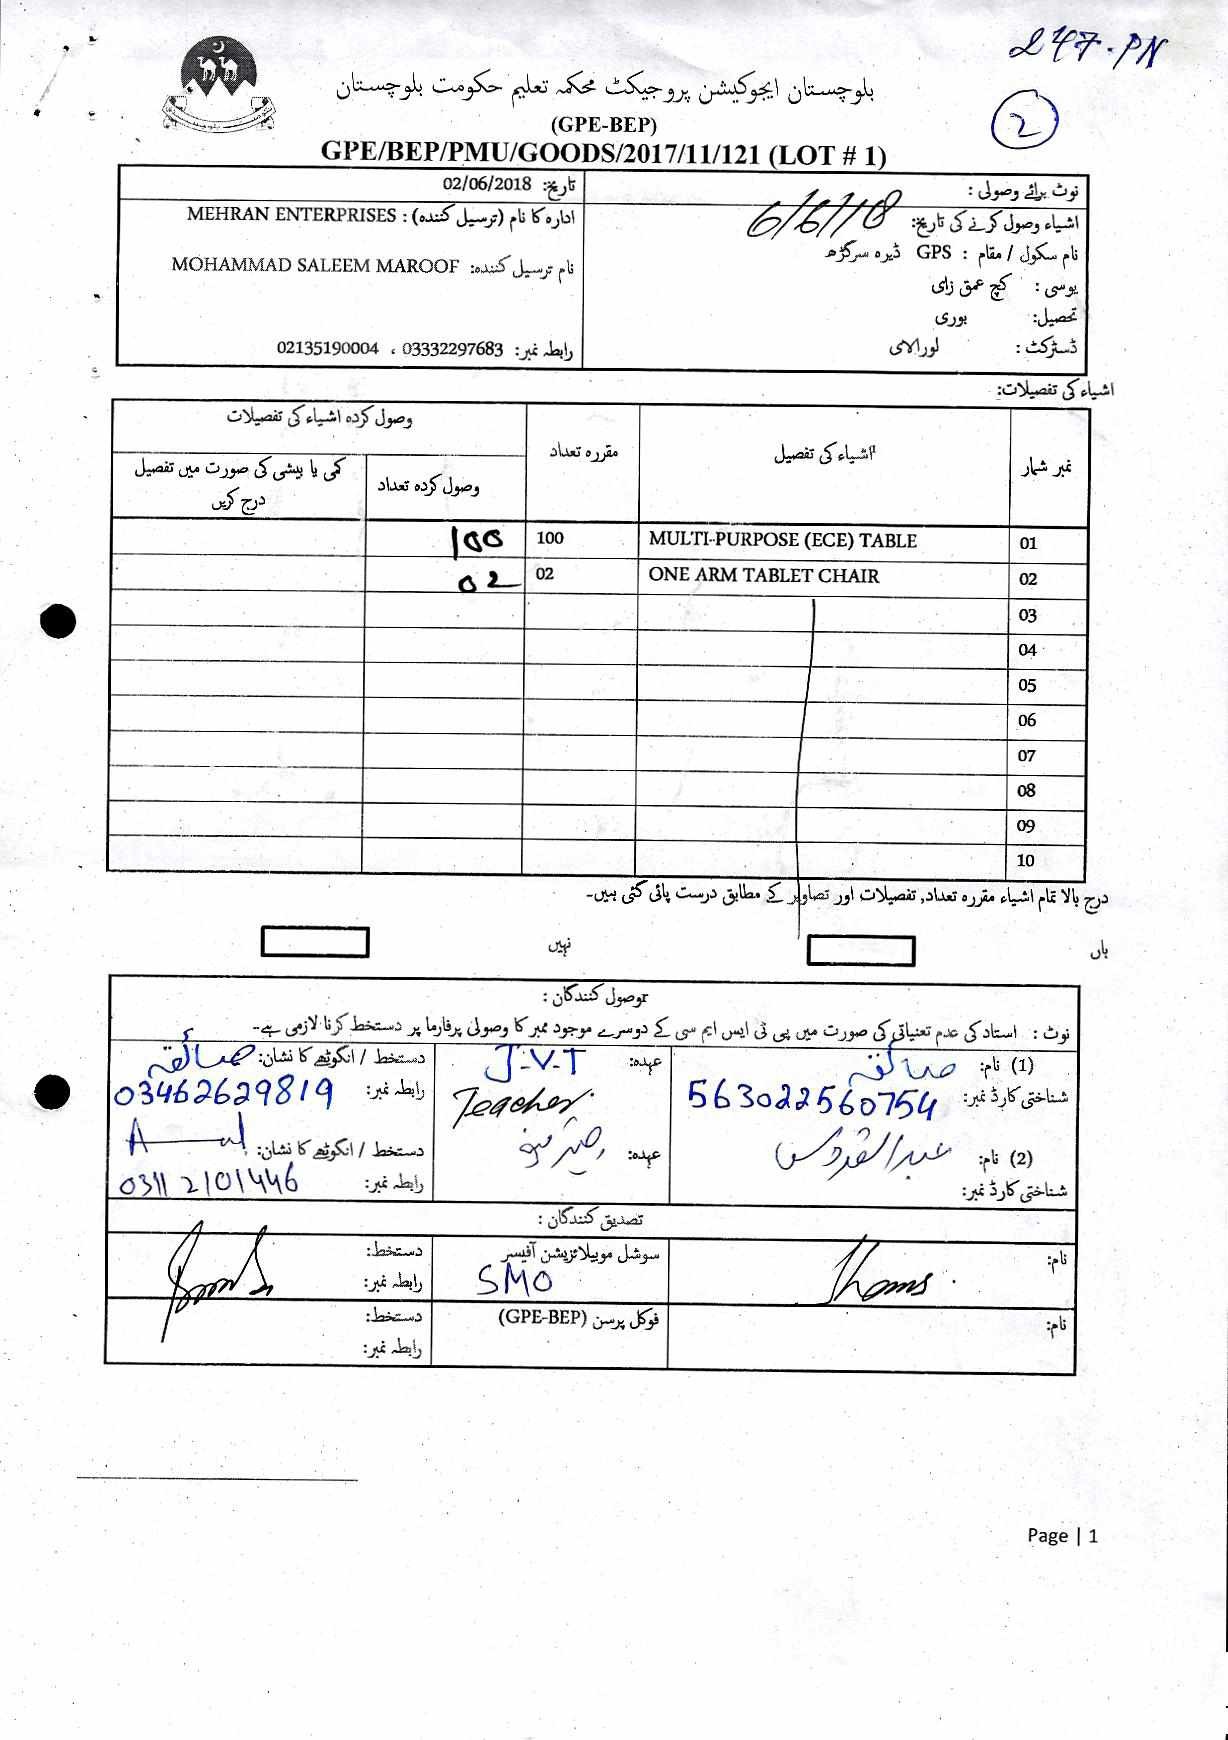 247-PN
2
بلوچستان ایجوکیشن پروجیکٹ محکمہ تعلیم حکومت بلوچستان
(GPE-BEP)
GPE/BEP/PMU/GOODS/2017/11/121 (LOT # 1)
نوٹ برائے وصولی :
اشیاء وصول کرنے کی تاریخ: 6/6/18
نام سکول / مقام : GPS ڈیرہ سرگڑھ
یوسی : کچ عمق زای
تحصیل: بوری
ڈسٹرکٹ : لورالای
تاریخ: 02/06/2018
ادارہ کا نام (ترسیل کنندہ) : MEHRAN ENTERPRISES
نام ترسیل کنندہ: MOHAMMAD SALEEM MAROOF
رابطہ نمبر: 03332297683 ، 02135190004
اشیاء کی تفصیلات:
نمبر شمار اشیاء کی تفصیل مقررہ تعداد وصول کردہ اشیاء کی تفصیلات
وصول کردہ تعداد کمی یا بیشی کی صورت میں تفصیل درج کریں
01 MULTI-PURPOSE (ECE) TABLE 100 100
02 ONE ARM TABLET CHAIR 02 02
03
04
05
06
07
08
09
10
درج بالا تمام اشیاء مقررہ تعداد, تفصیلات اور تصاویر کے مطابق درست پائی گئی ہیں۔
ہاں نہیں
وصول کنندگان :
نوٹ : استاد کی عدم تعنیاتی کی صورت میں پی ٹی ایس ایم سی کے دوسرے موجود ممبر کا وصولی پرفارما پر دستخط کرنا لازمی ہے۔
(1) نام: صائقہ عہدہ: J.V.T دستخط / انگوٹھے کا نشان: صائقہ
شناختی کارڈ نمبر: 563022560754 Teacher رابطہ نمبر: 03462629819
(2) نام: عبدالقدوس عہدہ: دستخط / انگوٹھے کا نشان:
شناختی کارڈ نمبر: رابطہ نمبر: 03112101446
تصدیق کنندگان :
نام: Shams سوشل موبیلائزیشن آفیسر دستخط:
SMO رابطہ نمبر:
نام: فوکل پرسن (GPE-BEP) دستخط:
رابطہ نمبر:
Page | 1